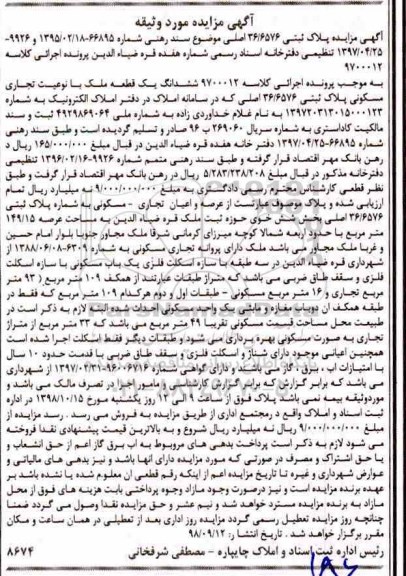 آگهی مزایده مورد وثیقه
آگهی مزایده پلاک ثبتی ۳۶/۶۵۷۶ اصلی موضوع سند رهنی شماره ۶۶۸۹۵-۱۳۹۵/۰۲/۱۸ و ۹۹۲۶-
۱۳۹۷/۰۴/۲۵ تنظیمی دفترخانه اسناد رسمی شماره هفده قره ضیاء الدین پرونده اجرائی کلاسه
۹۷۰۰۰۱۲
به موجب پرونده اجرائی کلاسه ۹۷۰۰۰۱۲ ششدانگ یک قطعه ملک با نوعیت تجاری
مسکونی پلاک ثبتی ۳۶/۶۵۷۶ اصلی که در سامانه املاک در دفتر املاک الکترونیک به شماره
۱۳۹۷۲۰۳۱۳۰۱۵۰۰۰۱۲۳ به نام غلام خداوردی زاده به شماره ملی ۴۹۲۹۸۶۹۰۶۴ ثبت و سند
مالکیت کاداستری به شماره سریال ۲۶۹۰۶۰ ب ۹۶ صادر و تسلیم گردیده است و طبق سند رهنی
شماره ۶۶۸۹۵-۱۳۹۷/۰۴/۲۵ دفتر خانه هفده قره ضیاء الدین در قبال مبلغ ۱۶۵/۰۰۰/۰۰۰ ریال در
رهن بانک مهر اقتصاد قرار گرفته و طبق سند رهنی متمم شماره ۹۹۲۶-۱۳۹۶/۰۲/۱۶ تنظیمی
دفترخانه مذکور در قبال مبلغ ۵/۲۸۳/۲۳۸/۲۰۸ ریال در رهن بانک مهر اقتصاد قرار گرفت و طبق
نظر قطعی کارشناس محترم رسمی دادگستری به مبلغ ۹/۰۰۰/۰۰۰/۰۰۰ نه میلیارد ریال تمام
ارزیابی شده و پلاک موصوف عبارتست از عرصه و اعیان تجاری - مسکونی به شماره پلاک ثبتی
۳۶/۶۵۷۶ اصلی بخش شش خوی حوزه ثبت ملک قره ضیاء الدین به مساحت عرصه ۱۴۹/۱۵
متر مربع با حدود اربعه شمالا کوچه میرزای کرمانی شرقا ملک مجاور جنوبا بلوار امام حسین
و غربا ملک مجاور می باشد ملک دارای پروانه تجاری مسکونی به شماره ۶۳۰۹-۱۳۸۸/۰۶/۰۸ از
شهرداری قره ضیاء الدین در سه طبقه با سازه اسکلت فلزی یک باب مسکونی با سازه اسکلت
فلزی و سقف طاق ضربی می باشد که متراژ طبقات عبارتند از همکف ۱۰۹ متر مربع ( ۹۳ متر
مربع تجاری و ۱۶ متر مربع مسکونی - طبقات اول و دوم هرکدام ۱۰۹ متر مربع که فقط در
طبقه همکف آن دو باب مغازه و مابقی یک واحد مسکونی احداث شده است لازم به ذکر است در
طبیعت محل مساحت قسمت مسکونی تقریبا ۴۹ متر مربع می باشد که ۳۳ متر مربع از متراژ
تجاری به صورت مسکونی بهره برداری می شود و طبقات دیگر فقط اسکلت اجرا شده است
همچنین اعیانی موجود دارای شناژ و اسکلت فلزی و سقف طاق ضربی با قدمت حدود ۱۰ سال
با امتیازات آب ، برق ، گاز می باشد و دارای گواهی شماره ۶۷۱۶-۹۶-۱۳۹۷/۰۴/۳۱ از شهرداری
می باشد که برابر گزارش که برابر گزارش کارشناس و مامور اجرا در تصرف مالک می باشد و
موردوثیقه بیمه نمی باشد پلاک فوق از ساعت ۹ الی ۱۲ روز یکشنبه مورخ ۱۳۹۸/۱۰/۱۵ در اداره
ثبت اسناد و املاک واقع در مجتمع اداری از طریق مزایده به فروش می رسد . رسد مزایده از
مبلغ ۹/۰۰۰/۰۰۰/۰۰۰ ریال نه میلیارد ریال شروع و به بالاترین قیمت پیشنهادی نقدا فروخته
می شود لازم به ذکر است پرداخت بدهی های مربوطه به آب برق گاز اعم از حق انشعاب و
یا حق اشتراک و مصرف در صورتی که مورد مزایده دارای آنها باشد و نیز بدهی های مالیاتی و
عوارض شهرداری و غیره تا تاریخ مزایده اعم از اینکه رقم قطعی آن معلوم شده یا نشده باشد بر
عهده برنده مزایده است و نیز درصورت وجود مازاد وجوه پرداختی بابت هزینه های فوق از محل
مازاد به برنده مزایده مسترد خواهد شد و نیم عشر و حق مزایده نقدا وصول می گردد ضمنا
چنانچه روز مزایده تعطیل رسمی گردد مزایده روز اداری بعد از تعطیلی در همان ساعت و مکان
مقرر برگزار خواهد شد . تاریخ انتشار : ۹۸/۰۹/۱۲
رئیس اداره ثبت اسناد و املاک چایپاره - مصطفی شرفخانی ۸۶۷۴